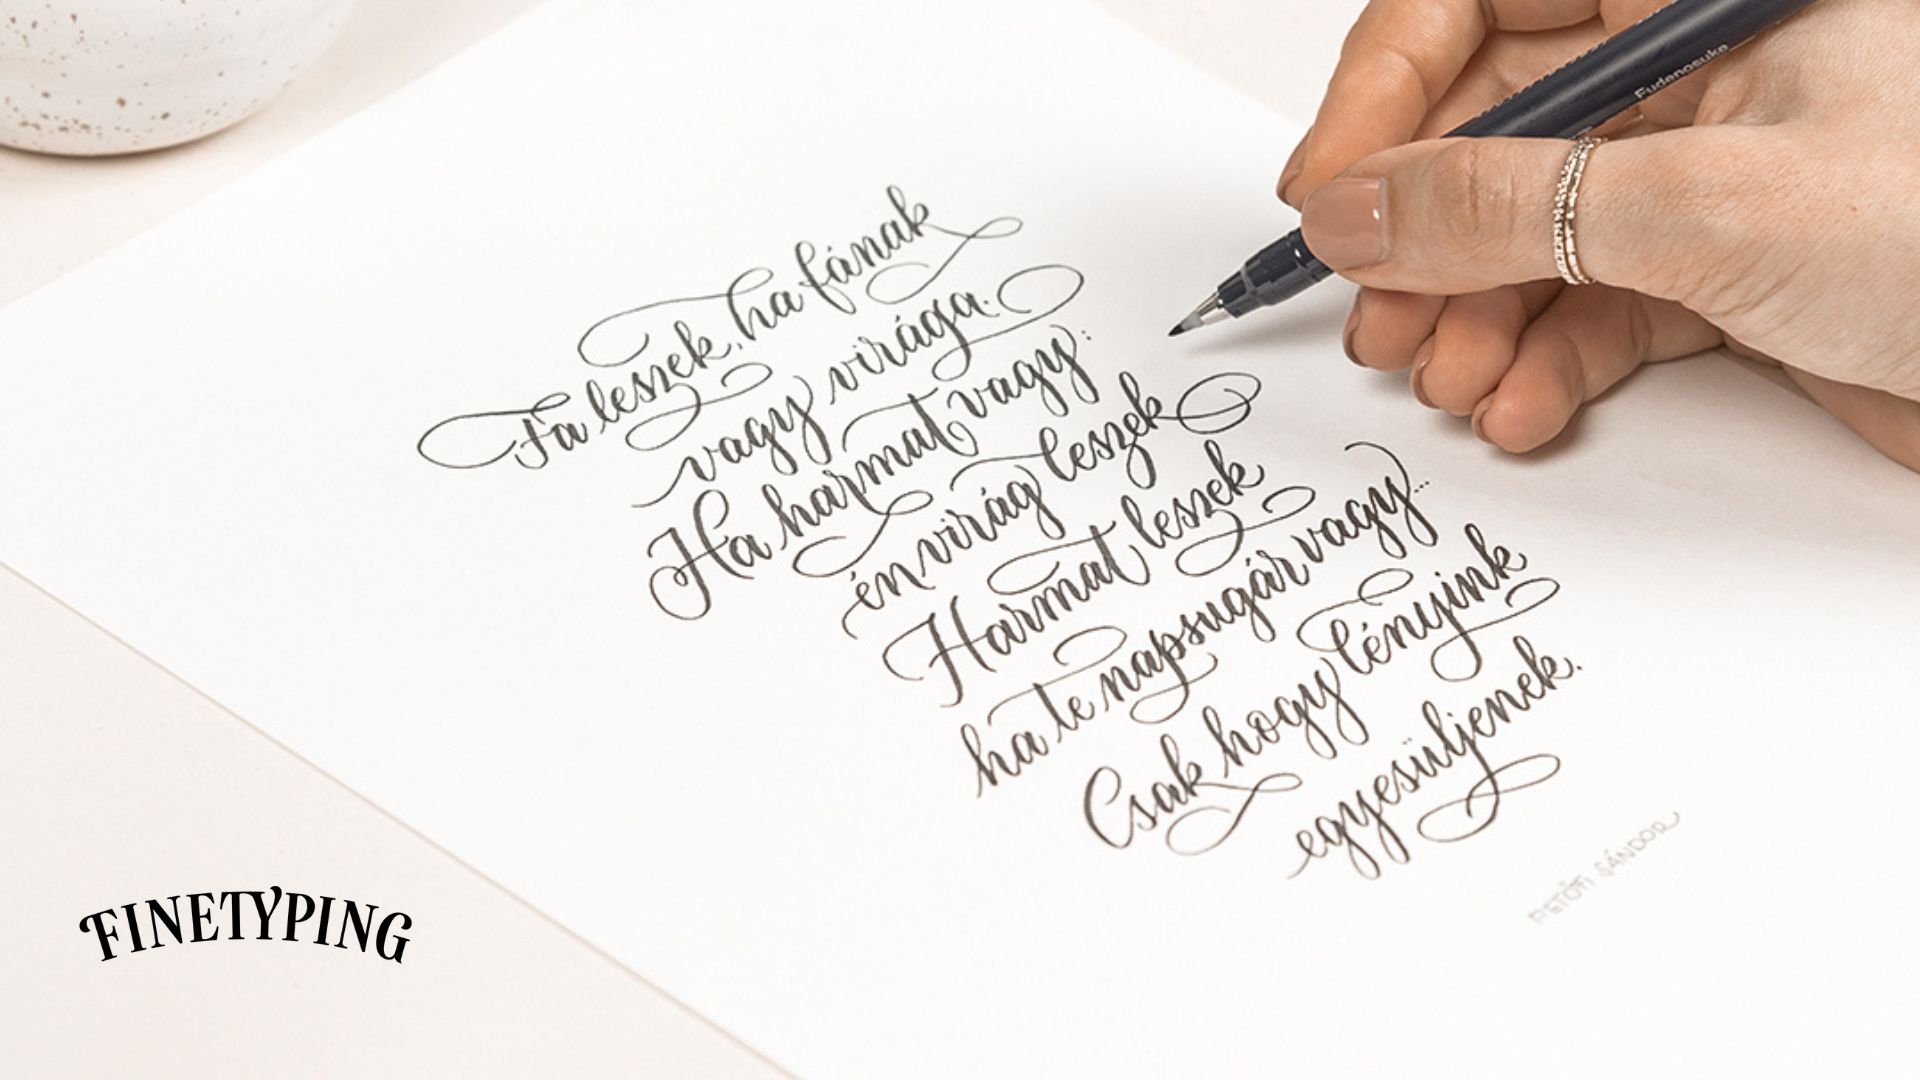 Fa leszek, ha fának
vagy virága.
Ha harmat vagy:
én virág leszek
Harmat leszek
ha te napsugár vagy...
Csak hogy lényink
egyesüljenek.
PETŐFI SÁNDOR
Fudenosuke
FINETYPING